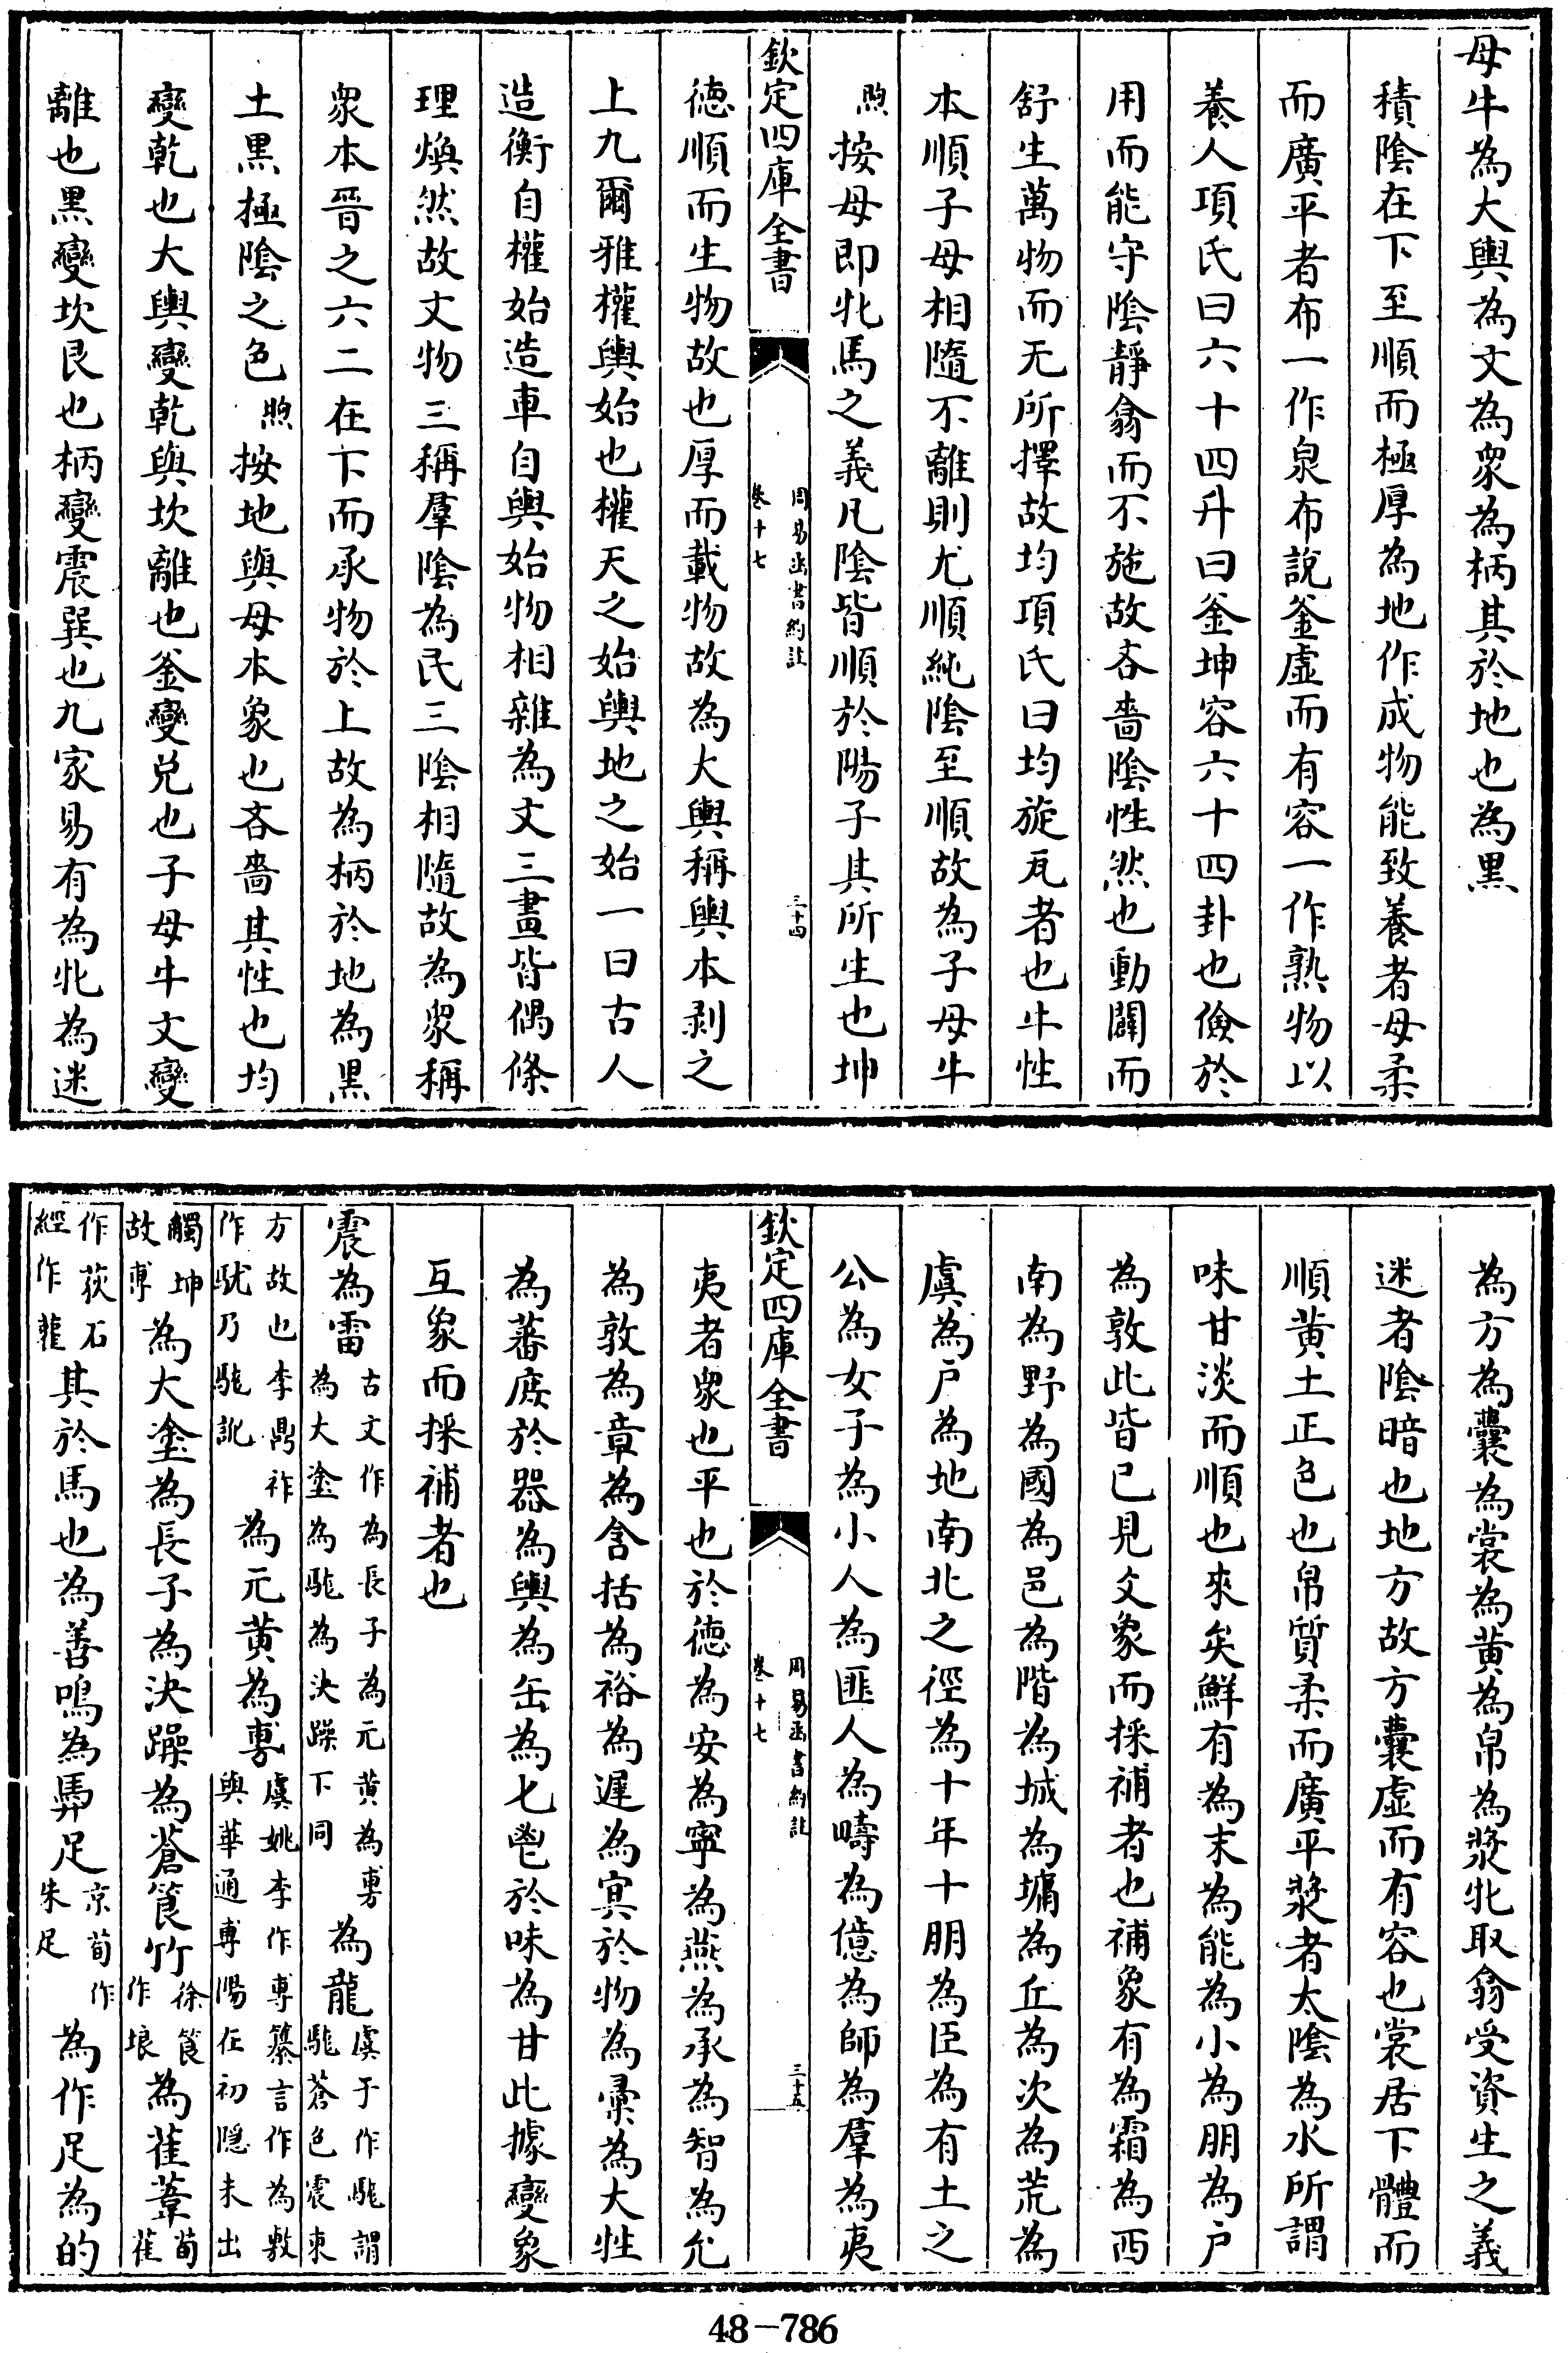 母牛為大輿為文為衆為柄其於地也為黒
積陰在下至順而極厚為地作成物能致養者母柔
而廣平者布一作泉布說釜虛而有容一作熟物以
養人項氏曰六十四升曰釜坤容六十四卦也儉於
用而能守陰靜翕而不施故吝嗇陰性然也動闢而
舒生萬物而无所擇故均項氏曰均旋瓦者也牛性
本順子母相隨不離則尤順純陰至順故為子母牛
煦按母即牝馬之義凡陰皆順於陽子其所生也坤
欽定四庫全書
周易函書約註
卷十七
三十四
德順而生物故也厚而載物故為大輿稱輿本剥之
上九爾雅權輿始也權天之始輿地之始一曰古人
造衡自權始造車自輿始物相雜為文三畫皆偶條
理煥然故文物三稱羣陰為民三陰相隨故為衆稱
衆本晉之六二在下而承物於上故為柄於地為黒
土黒極陰之色煦按地與母本象也吝嗇其性也均
變乾也大輿變乾與坎離也釜變兌也子母牛文變
離也黒變坎艮也柄變震巽也九家易有為牝為迷
為方為囊為裳為黄為帛為漿牝取翕受資生之義
迷者陰暗也地方故方囊虛而有容也裳居下體而
順黄土正色也帛質柔而廣平漿者太陰為水所謂
味甘淡而順也來矣鮮有為末為能為小為朋為户
為敦此皆已見文象而採補者也補象有為霜為西
南為野為國為邑為階為城為墉為丘為次為荒為
虞為户為地南北之徑為十年十朋為臣為有土之
公為女子為小人為匪人為疇為億為師為羣為夷
欽定四庫全書
周易函書約註
卷十七
三十五
夷者衆也平也於德為安為寧為燕為承為智為允
為敦為章為含括為裕為遲為㝠於物為彙為大牲
為蕃庶於器為輿為缶為匕鬯於味為甘此據變象
互象而採補者也
震為雷古文作為長子為元黄為旉為大塗為駹為決躁下同為龍虞于作駹謂駹蒼色震東
方故也李鼎祚作駹乃駹訛為元黄為旉虞姚李作專纂言作為敷與華通專陽在初隠未出
觸坤故專為大塗為長子為決躁為蒼筤竹徐筤作埌為萑葦荀萑
作荻石經作藋其於馬也為善鳴為馵足京荀作朱足為作足為的
48-786